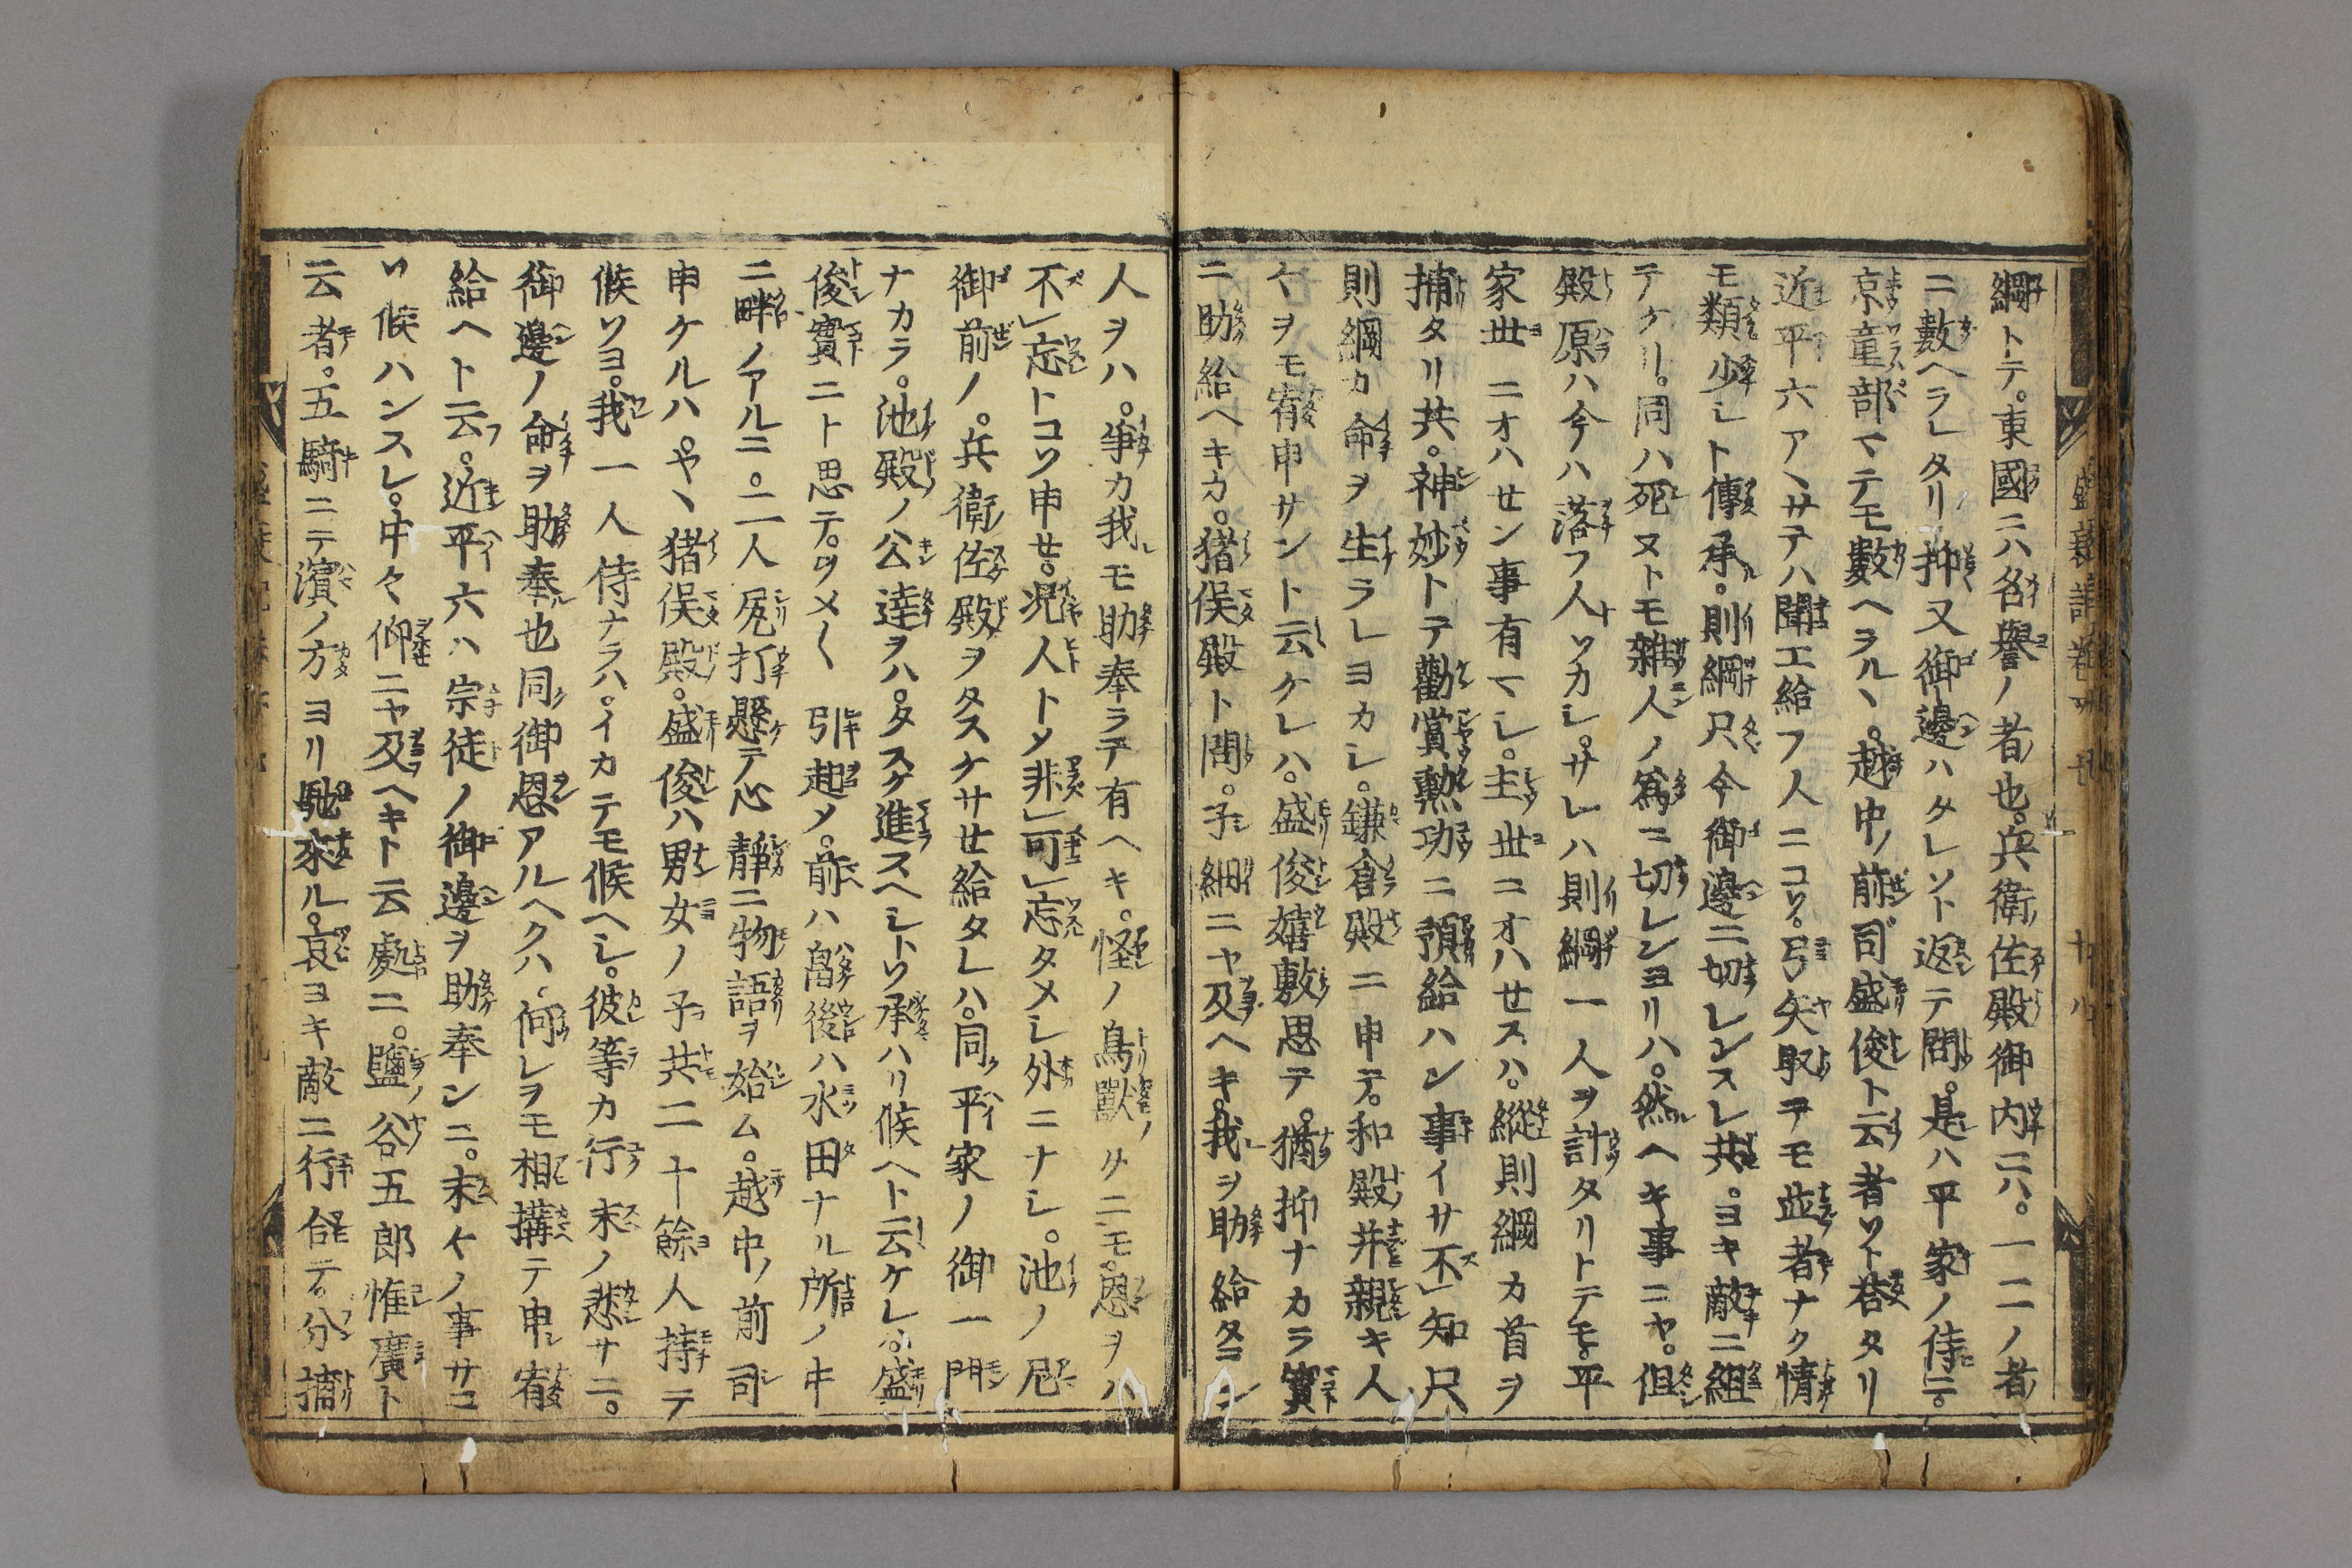 綱トテ。東國ニハ名譽ノ者也。兵衛佐殿御内ニハ。一二ノ者
ニ數ヘラレタリ抑又御邊ハタレソト返テ問。是ハ平家ノ侍ニテ。
京童部マテモ數ヘヲルヽ。越中前司盛俊ト云者ソト答タリ
近平六アヽサテハ聞エ給フ人ニコソ。弓矢取テモ並者ナク情
モ類少シト傳承。則綱只今御邊ニ切レンスレ共。ヨキ敵ニ組
テケリ。同ハ死ヌトモ雜人ノ爲ニ切レンヨリハ。然ヘキ事ニヤ。但
殿原ハ今ハ落フ人ソカシ。サレハ則綱一人ヲ討タリトテモ。平
家世ニオハせン事有マシ。主世ニオハせスハ。縱則綱カ首ヲ
捕タリ共。神妙トテ勸賞勲功ニ預給ハン事イサ不知只
則綱カ命ヲ生ラレヨカシ。鎌倉殿ニ申テ。和殿并親キ人
々ヲモ宥申サント云ケレハ。盛俊嬉敷思テ。猶抑ナカラ實
ニ助給ヘキカ。猪俣殿ト問。子細ニヤ及ヘキ。我ヲ助給タラン
人ヲハ。爭カ我モ助奉ラテ有ヘキ。怪ノ鳥獸タニモ。恩ヲハ
不忘トコソ申せ。况人トメ非可忘タメシ外ニナシ。池ノ尼
御前ノ。兵衛佐殿ヲタスケサせ給タレハ。同平家ノ御一門
ナカラ。池殿ノ公達ヲハ。タスケ進スヘシトソ承ハリ候ヘト云ケレハ。盛
俊實ニト思テ。ヲメ〱引起メ。前ハ畠後ハ水田ナル所ノ中
ニ畔ノアルニ。二人尻打懸テ心靜ニ物語ヲ始ム。越中前司
申ケルハ。ヤヽ猪俣殿。盛俊ハ男女ノ子共二十餘人持テ
候ソヨ。我一人侍ナラハ。イカテモ候ヘシ。彼等カ行末ノ悲サニ。
御邊ノ命ヲ助奉也同御恩アルヘクハ。何レヲモ相搆テ申宥
給ヘト云。近平六ハ宗徒ノ御邊ヲ助奉ンニ。末々ノ事サコ
ソ候ハンスレ。中々仰ニヤ及ヘキト云處ニ。鹽谷五郎惟廣ト
云者。五騎ニテ濱ノ方ヨリ馳來ル。哀ヨキ敵ニ行合テ。分捕